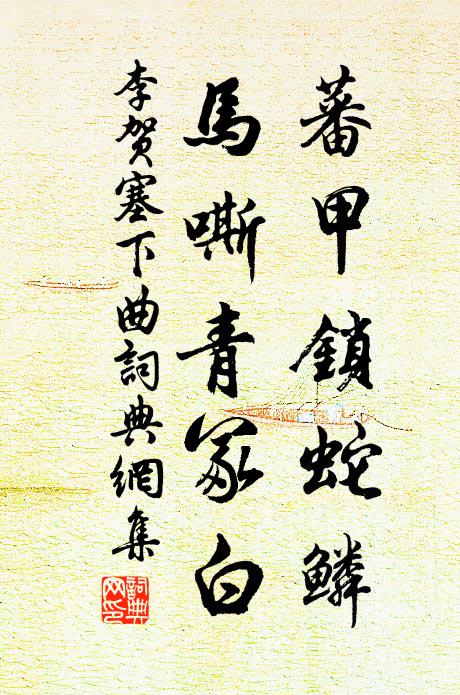 蕃甲鎖蛇鱗
馬嘶青冢白
李賀塞下曲詞典網集
詞典
网印